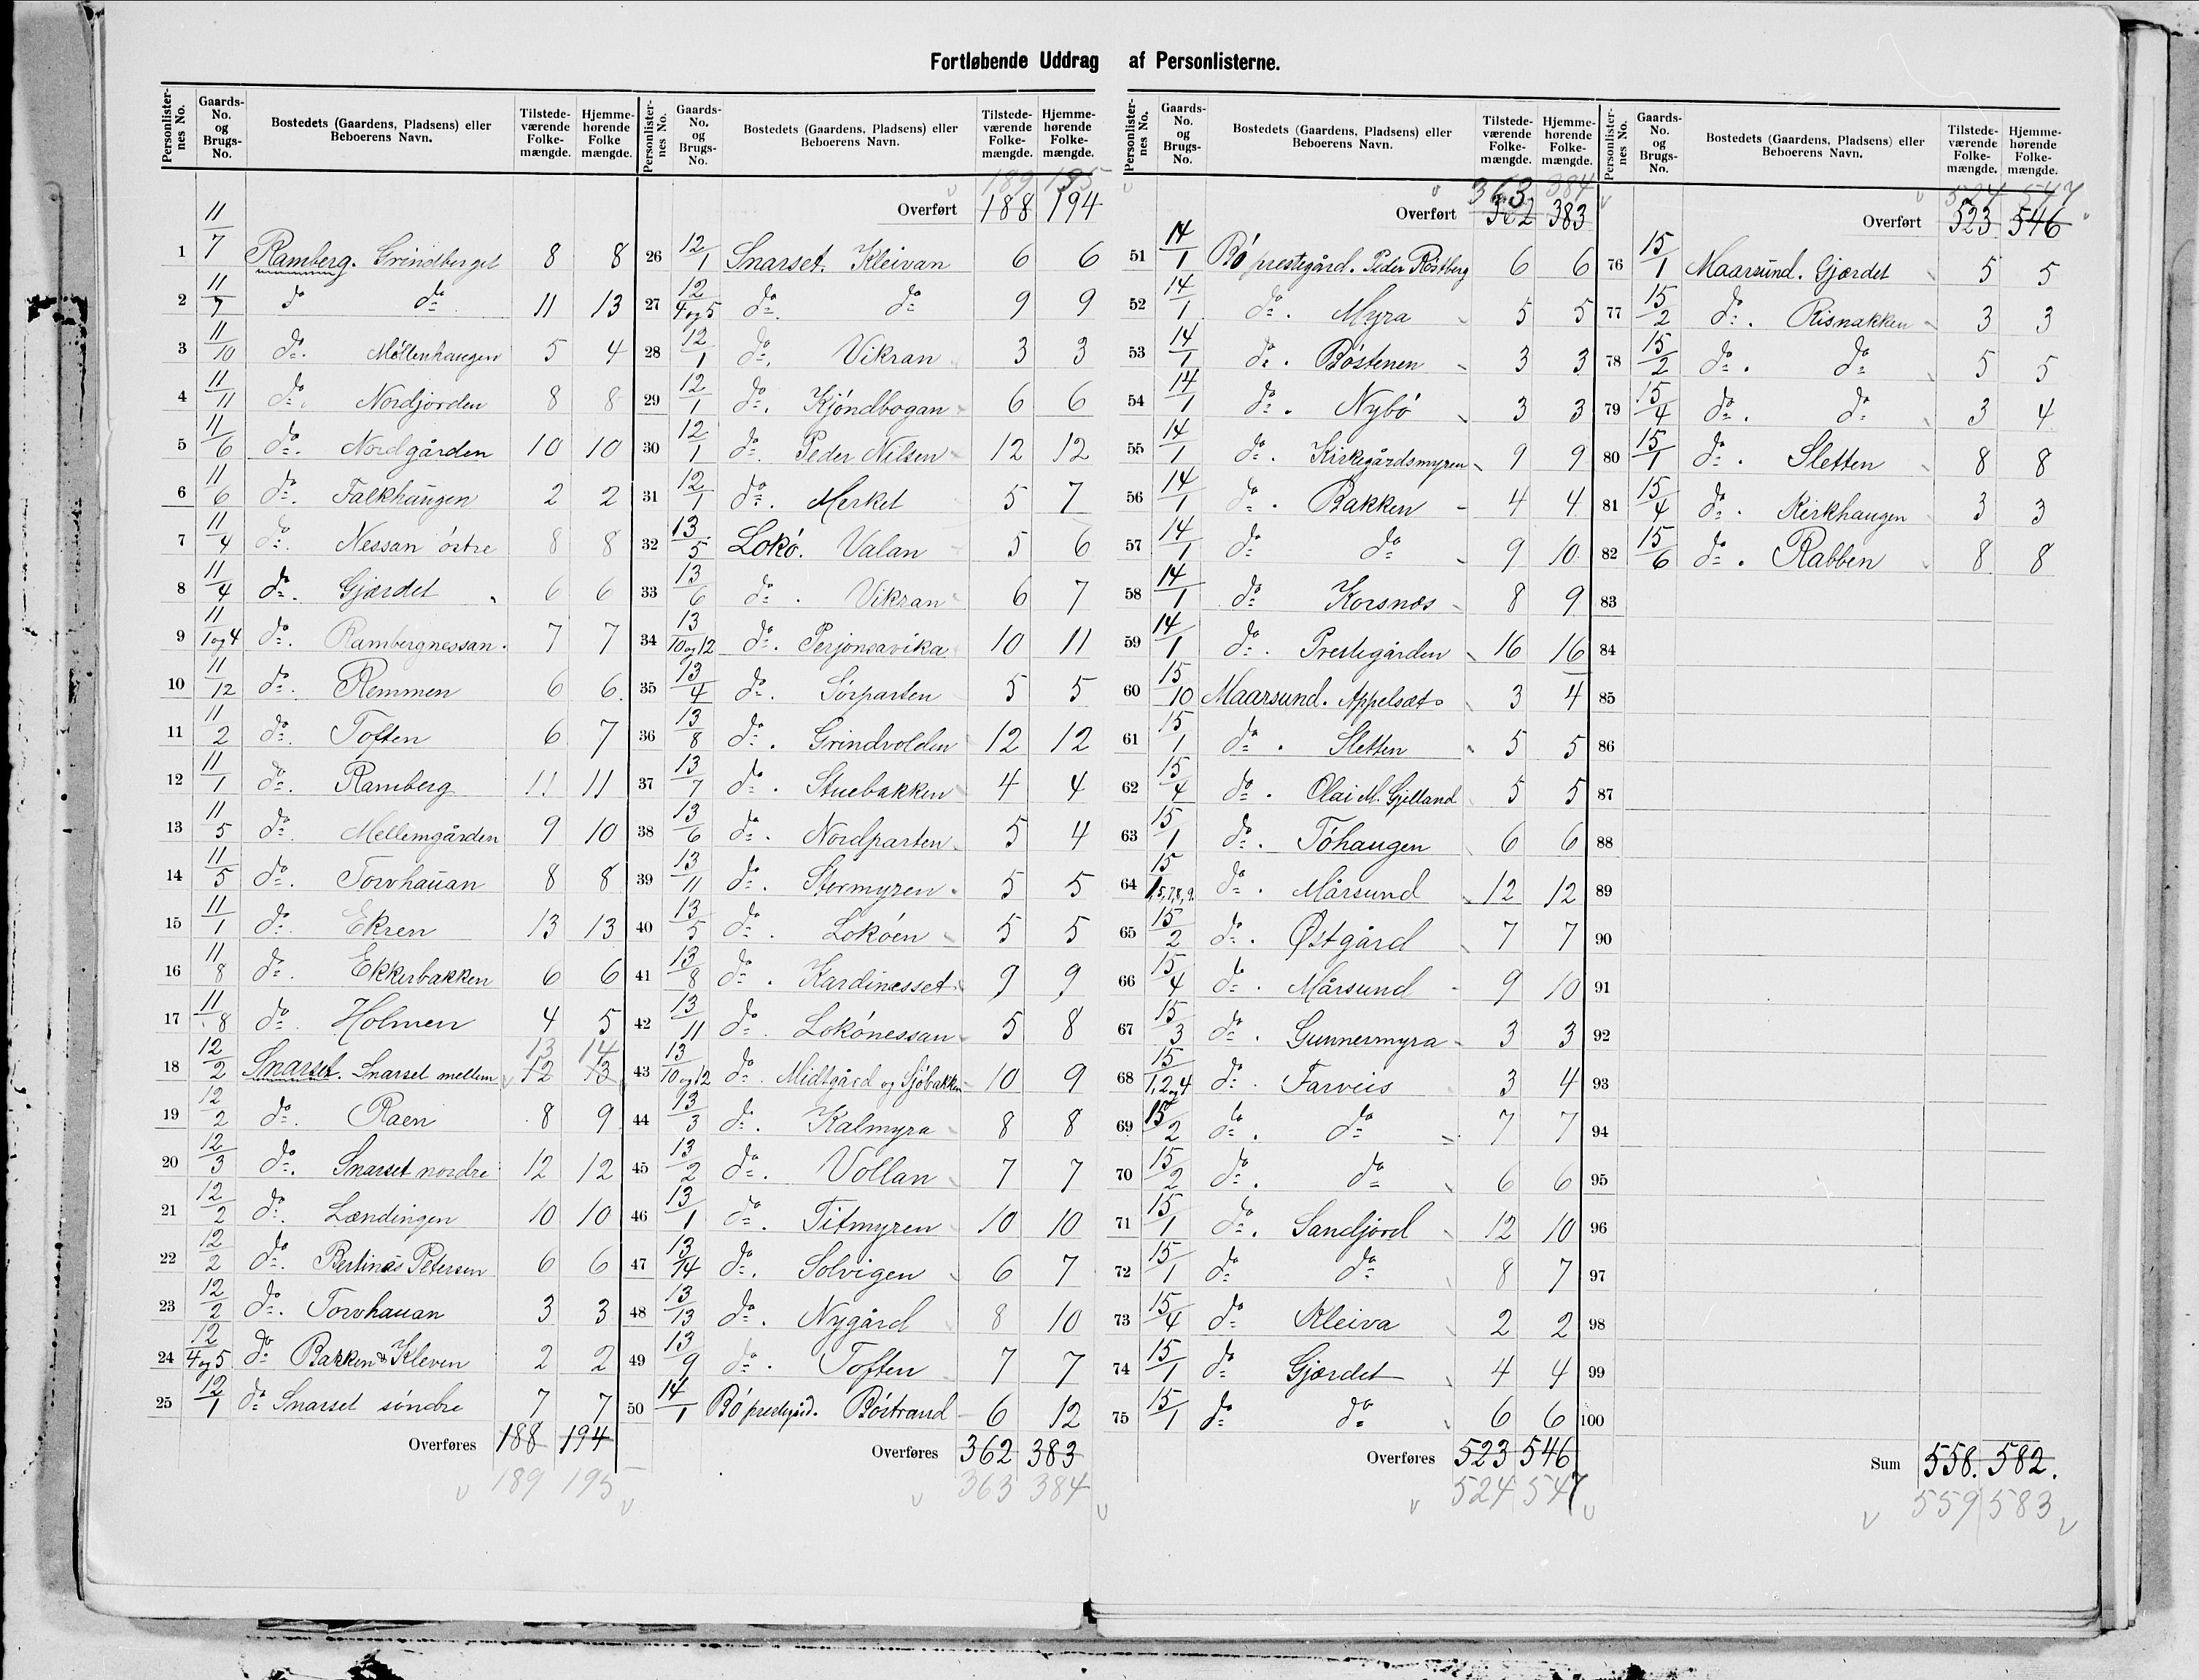 Fortløbende Uddrag af Personlisterne.
Personlisternes No. Gaards-No. og Brugs-No. Bostedets (Gaardens, Pladsens) eller Beboerens Navn. Tilstedeværende Folkemængde. Hjemmehørende Folkemængde.
1 11/7 Ramberg. Grindberget 8 8
2 11/7 do do 11 13
3 11/10 do. Möllenhaugen 5 4
4 11/11 do. Nordjorden 8 8
5 11/6 do. Nordgården 10 10
6 11/6 do. Falkhaugen 2 2
7 11/4 do. Nessan östre 8 8
8 11/4 do. Gjærdet 6 6
9 11/1og4 do. Rambergnessan. 7 7
10 11/12 do. Remmen 6 6
11 11/2 do. Toften 6 7
12 11/1 do. Ramberg 11 11
13 11/5 do. Mellemgården 9 10
14 11/5 do. Torvhauan 8 8
15 11/1 do. Ekren 13 13
16 11/8 do. Ekkerbakken 6 6
17 11/8 do. Holmen 4 5
13 14
18 12/2 Snarset. Snarset mellem 12 13
19 12/2 do. Raen 8 9
20 12/3 do. Snarset nordre 12 12
21 12/2 do. Lændingen 10 10
22 12/2 do. Bertinas Petersen 6 6
23 12/2 do. Torvhauan 3 3
24 12/4og5 do Bakken & Kleven 2 2
25 12/1 do Snarset söndre 7 7
Overføres 188 194
189 195
Personlisternes No. Gaards-No. og Brugs-No. Bostedets (Gaardens, Pladsens) eller Beboerens Navn. Tilstedeværende Folkemængde. Hjemmehørende Folkemængde.
189 195
Overført 188 194
26 12/1 Snarset. Kleivan 6 6
27 12/4og5 do. do 9 9
28 12/1 do. Vikran 3 3
29 12/1 do. Kjöndbogan 6 6
30 12/1 do. Peder Nilsen 12 12
31 12/1 do. Merket 5 7
32 13/5 Lokö. Valan 5 6
33 13/6 do. Vikran 6 7
34 13/10og12 do. Perjonsavika 10 11
35 13/4 do. Sörparten 5 5
36 13/8 do. Grindvolden 12 12
37 13/7 do. Stuebakken 4 4
38 13/6 do. Nordparten 5 4
39 13/11 do. Stormyren. 5 5
40 13/5 do. Loköen 5 5
41 13/8 do. Kardinesset 9 9
42 13/11 do. Lokönessan 5 8
43 13/10og12 do. Midtgård og Sjöbakken 10 9
44 13/3 do. Kalmyra 8 8
45 13/2 do. Vollan 7 7
46 13/1 do. Titmyren 10 10
47 13/14 do. Solvigen 6 7
48 13/13 do. Nygård 8 10
49 13/9 do. Toften 7 7
50 14/1 Bö prestegård. Böstrand 6 12
Overføres 362 383
363 384
Personlisternes No. Gaards-No. og Brugs-No. Bostedets (Gaardens, Pladsens) eller Beboerens Navn. Tilstedeværende Folkemængde. Hjemmehørende Folkemængde.
363 384
Overført 362 383
51 14/1 Bö prestegård. Peder Röstberg 6 6
52 14/1 do. Myra 5 5
53 14/1 do. Böstenen 3 3
54 14/1 do. Nybö 3 3
55 14/1 do. Kirkegårdsmyren 9 9
56 14/1 do. Bakken 4 4
57 14/1 do do 9 10
58 14/1 do Korsnes 8 9
59 14/1 do. Prestegården 16 16
60 15/10 Maarsund. Appelsæt 3 4
61 15/1 do. Sletten 5 5
62 15/4 do. Olai M. Gjelland 5 5
63 15/1 do. Töhaugen 6 6
64 15/1,5,7,8,9. do. Mårsund 12 12
65 15/2 do. Østgård 7 7
66 15/4 do. Mårsund 9 10
67 15/3 do. Gunnermyra 3 3
68 15/1,2og4 do. Farveis 3 4
69 15/2 do. do 7 7
70 15/2 do. do 6 6
71 15/1 do. Sandjord 12 10
72 15/1 do do 8 7
73 15/4 do Kleiva 2 2
74 15/1 do Gjærdet 4 4
75 15/1 do do 6 6
Overføres 523 546
524 547
Personlisternes No. Gaards-No. og Brugs-No. Bostedets (Gaardens, Pladsens) eller Beboerens Navn. Tilstedeværende Folkemængde. Hjemmehørende Folkemængde.
524 547
Overført 523 546
76 15/1 Maarsund. Gjærdet 5 5
77 15/2 do. Risnakken 3 3
78 15/2 do. do 5 5
79 15/4 do. do 3 4
80 15/1 do. Sletten 8 8
81 15/4 do. Kirkhaugen 3 3
82 15/6 do. Rabben 8 8
83
84
85
86
87
88
89
90
91
92
93
94
95
96
97
98
99
100
Sum 558. 582.
559 583